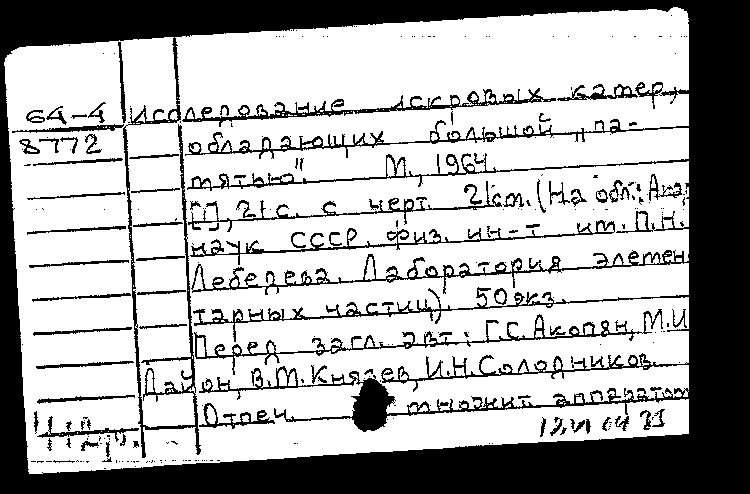 64-4 Исследование искровых камер,
8772 обладающих большой „па-
мятью". М., 1964.
[1], 21 с. с черт. 21см. (На обл.: Акад.
наук СССР. Физ. ин-т им. П.Н.
Лебедева. Лаборатория элемен-
тарных частиц). 50экз.
Перед загл. авт.: Г.С.Акопян, М.И.
Дайон, В.М.Князев, И.Н.Солодников.
Отпеч. множит. аппаратом